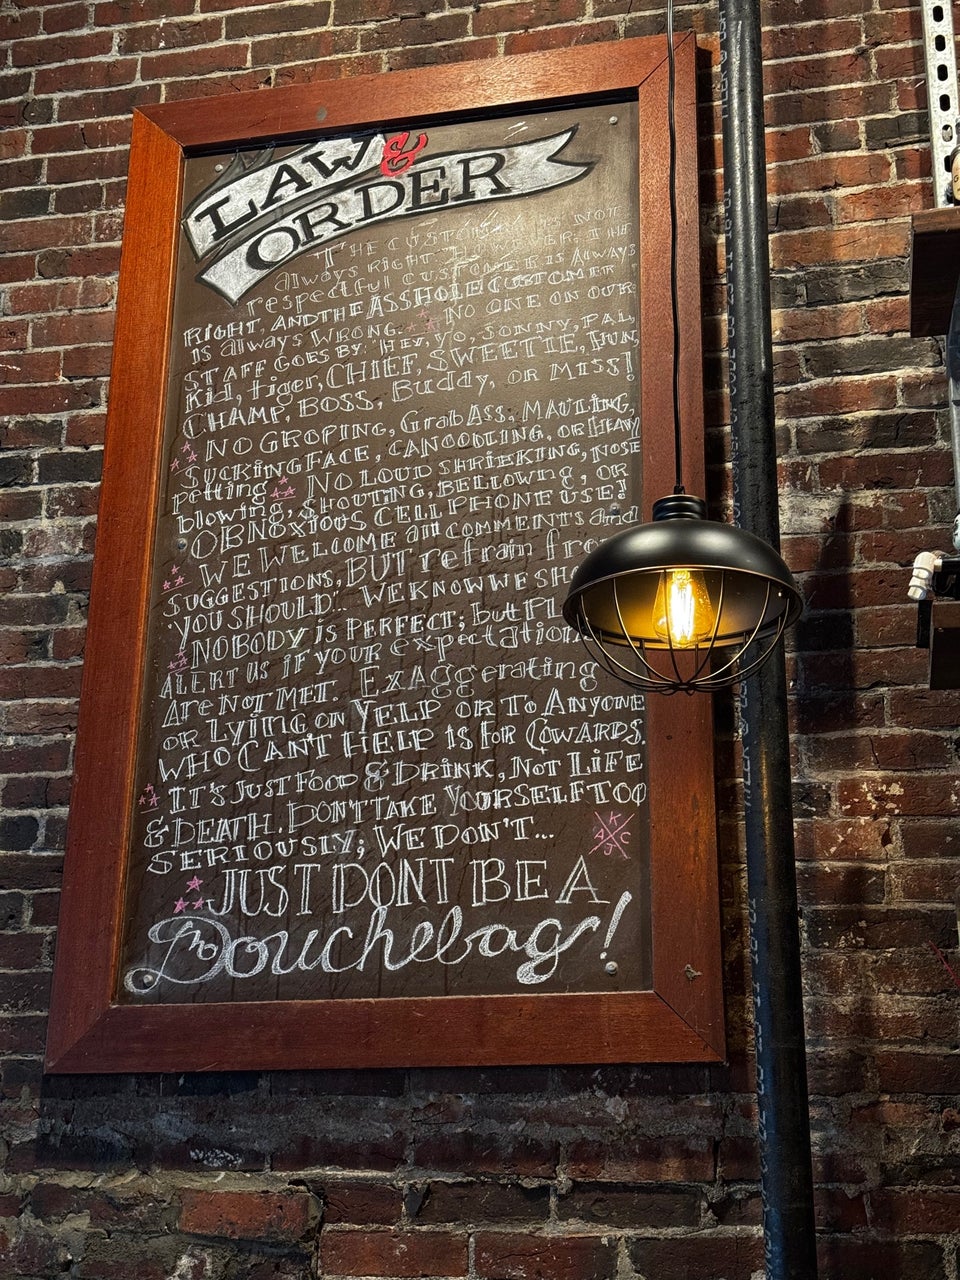 LAW &
ORDER
THE CUSTOMER IS NOT
always RIGHT. HOWEVER, THE
respectful CUSTOMER IS Always
RIGHT, AND THE ASSHOLE CUSTOMER
IS always WRONG. NO ONE ON OUR
STAFF GOES BY: "HEY, YO, SONNY, PAL,
Kid, tiger, CHIEF, SWEETIE, HUN,
CHAMP, BOSS, Buddy, OR MISS!
NO GROPING, GrabAss, MAULING,
SUCKINGFACE, CANOODLING, OR HEAVY
petting NO LOUD SHRIEKING, NOSE
blowing, SHOUTING, BELLOWING, OR
OBNOXIOUS CELL PHONE USE!
WE WELCOME all COMMENTS and
SUGGESTIONS, BUT refrain
"YOU SHOULD".. WE KNOW WE
NOBODY IS PERFECT; but
ALERT US IF YOUR
Are NOT MET. ExAggerating
OR LYING ON YELP OR TO ANYONE
WHO CAN'T HELP IS FOR COWARDS.
IT'S JUST FOOD & DRINK, NOT LIFE
& DEATH. DON'T TAKE YOURSELF TOO
SERIOUSLY; WE DON'T...
K
A C
J
JUST DONT BE A
Douchebag!